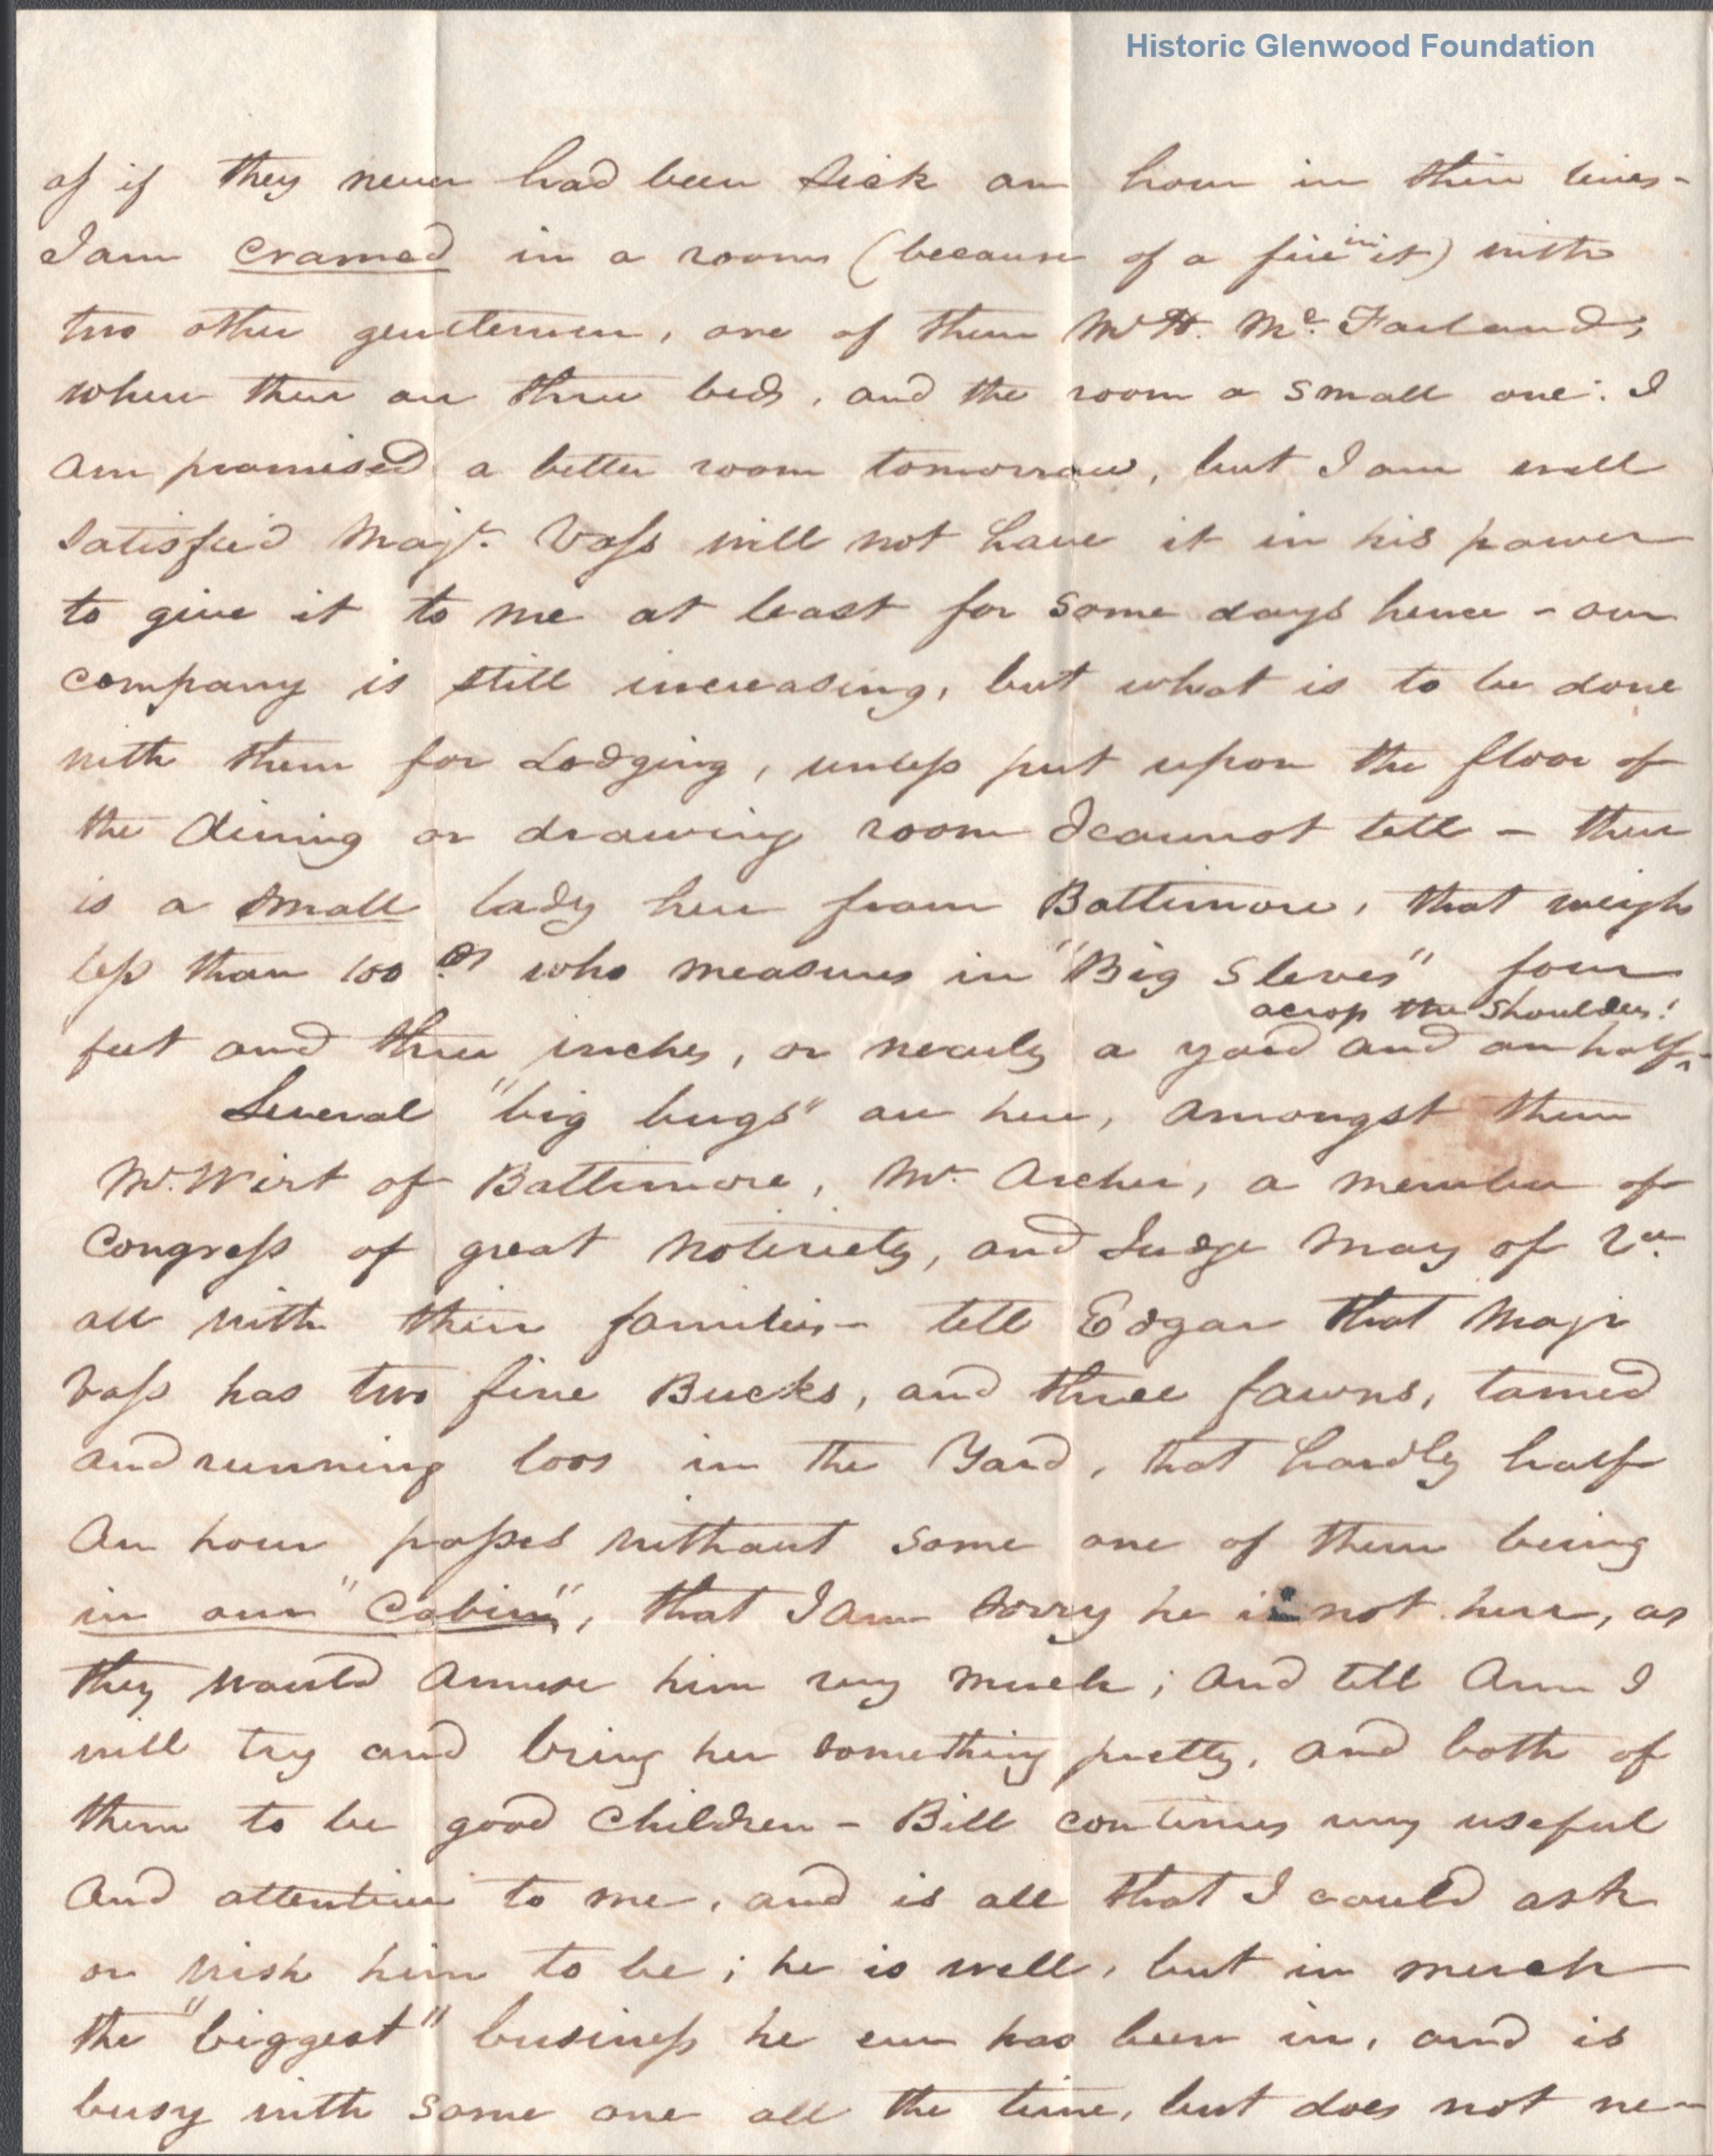 Historic Glenwood Foundation
as if they never had been sick an hour in their lives -
I am cramed in a room (because of a fire in it) with
two other gentlemen, one of them W H. Mc. Farland,
where ther are three beds, and the room a small one: I
am promised a better room tomorrow, but I am well
satisfied Majr. Vass will not have it in his power
to give it to me at least for some days hence - our
company is still increasing, but what is to be done
with them for Lodging, unless put upon the floor of
the dining or drawing room I cannot tell - ther
is a small lady here from Baltimore, that weighs
less than 100 who measures in "Big Sleves" four
feet and three inches, or nearly a yard and an half
across the shoulders!
Several "big bugs" are here, amongst them
Mr. Wirt of Baltimore, Mr. Archer, a member of
Congress of great notiriety, and Judge May of Va.
all with their families - tell Edgar that Majr
Vass has two fine Bucks, and three fawns, tamed
and running loos in the Yard, that hardly half
an hour passes without some one of them being
in our "Cabin", that I am sorry he is not here, as
they would amuse him very much; and tell Ann I
will try and bring her something pretty, and both of
them to be good children - Bill continues very useful
and attentive to me, and is all that I could ask
or wish him to be; he is well, but in much
the "biggest" business he ever has been in, and is
busy with some one all the time, but does not ne-